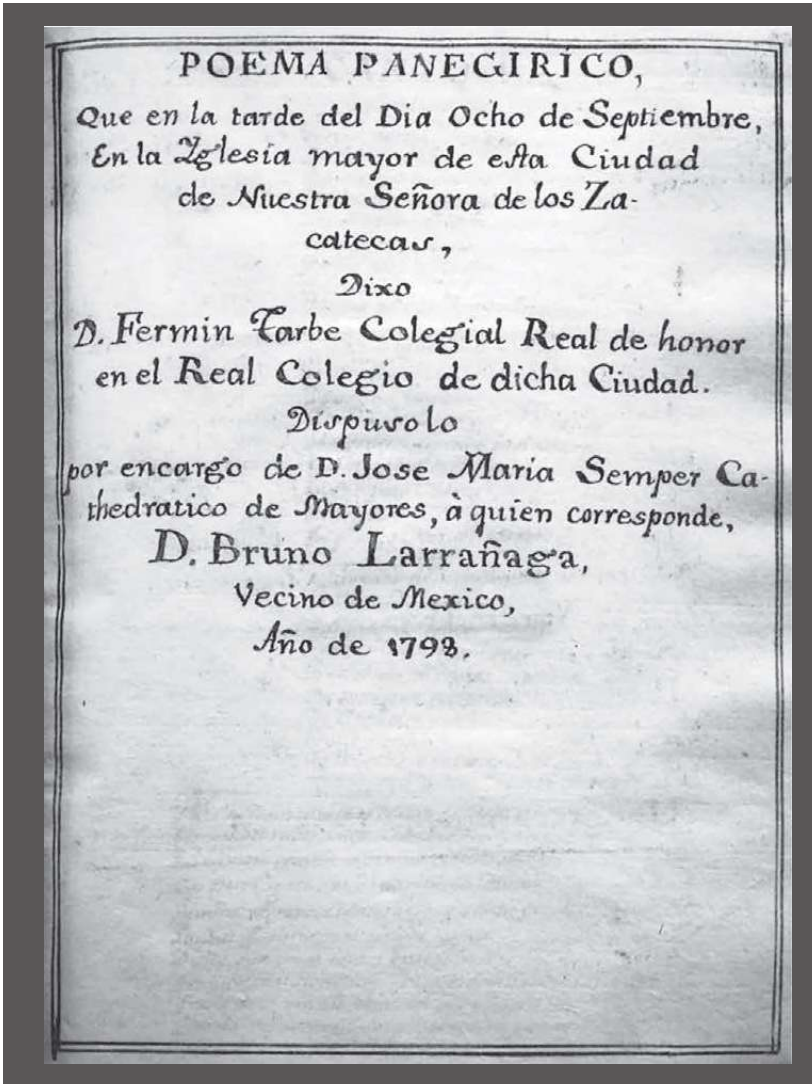 POEMA PANEGIRÍCO,
Que en la tarde del Dia Ocho de Septiembre,
En la Yglesia mayor de esta Ciudad
de Nuestra Señora de los Za-
catecas,
Dixo
D. Fermin Tarbe Colegial Real de honor
en el Real Colegio de dicha Ciudad.
Dispusolo
por encargo de D. Jose Maria Semper Ca-
thedratico de Mayores, à quien corresponde,
D. Bruno Larrañaga,
Vecino de Mexico,
Año de 1798.